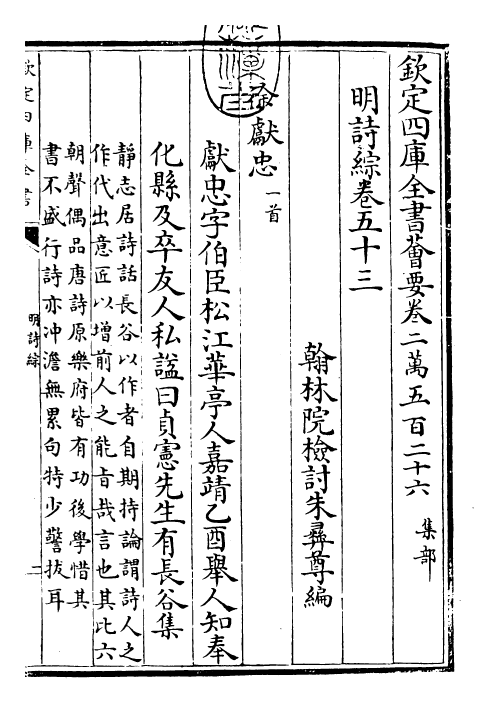 欽定四庫全書薈要卷二萬五百二十六 集部
明詩綜卷五十三
翰林院檢討朱彝尊編
徐獻忠 一首
獻忠字伯臣松江華亭人嘉靖乙酉舉人知奉
化縣及卒友人私諡曰貞憲先生有長谷集
靜志居詩話長谷以作者自期持論謂詩人之
作代出意匠以增前人之能旨哉言也其比六
朝聲偶品唐詩原樂府皆有功後學惜其
書不盛行詩亦冲澹無累句特少警拔耳
欽定四庫全書
明詩綜
二